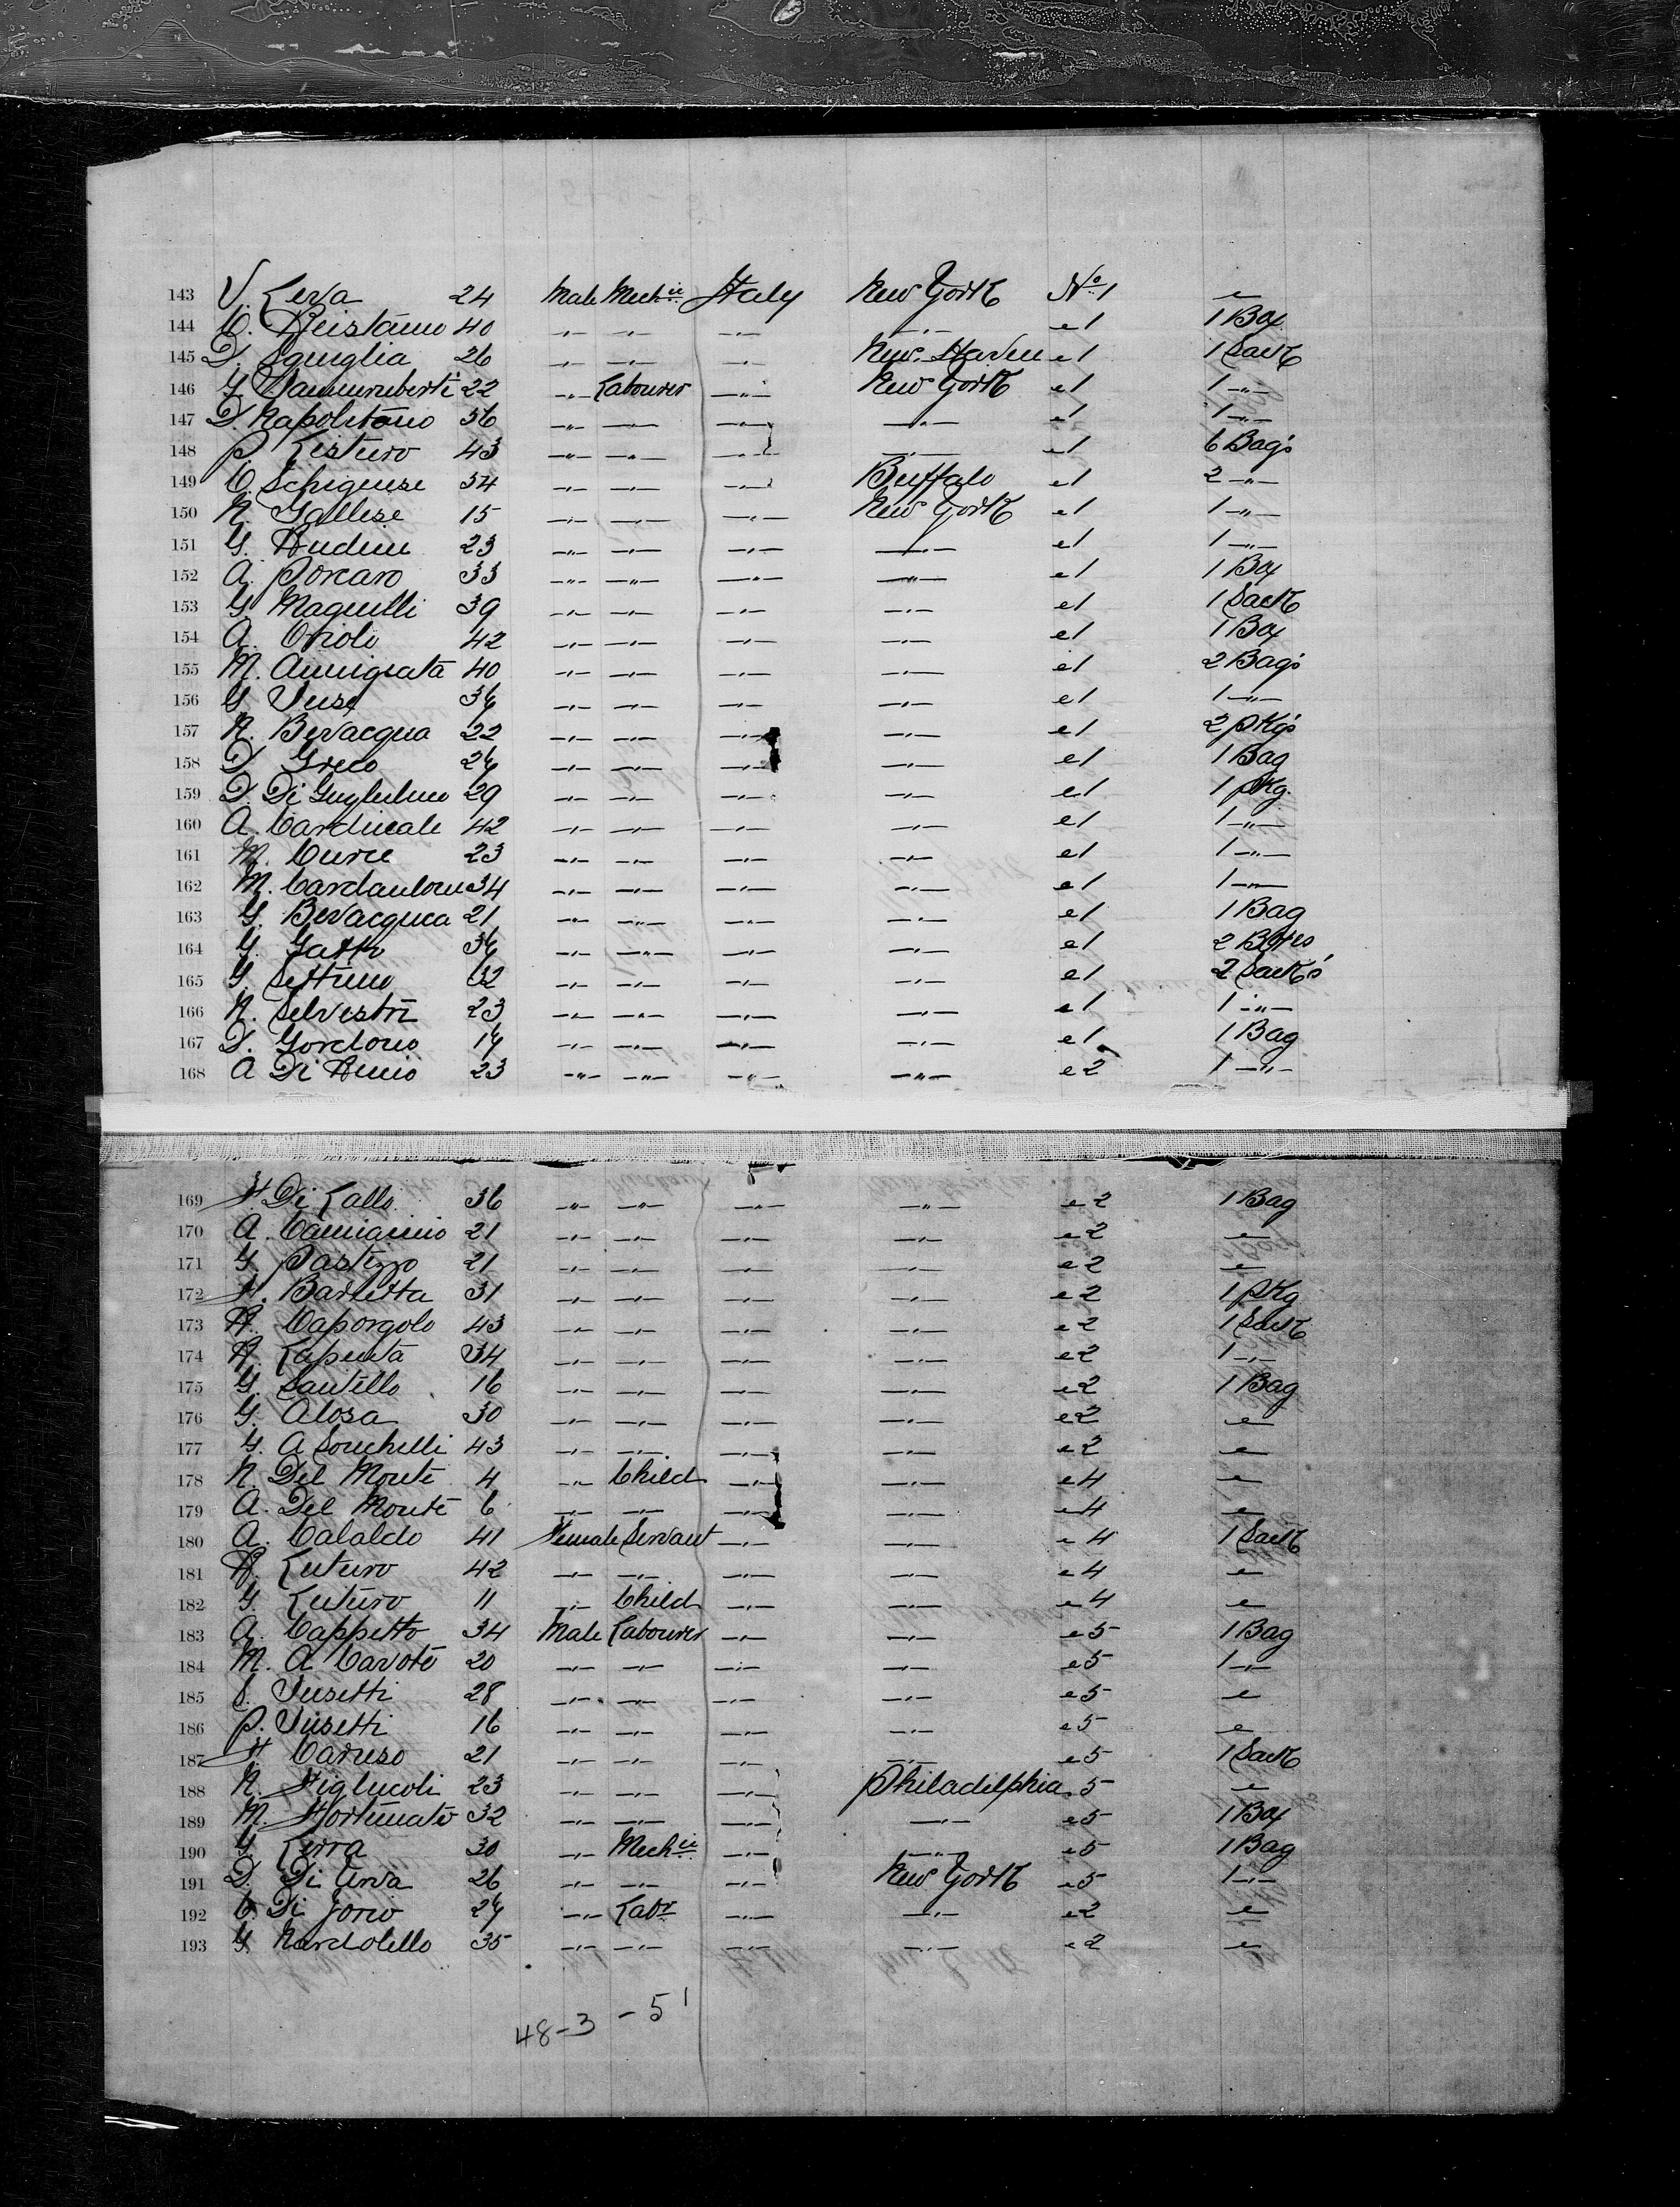 143 V. Leva 24 Male Mech ic Italy New York No 1 "
144 C. Reistamo 40 -"- -"- -"- -"- " 1 1 Box
145 D. Sguiglia 26 -"- -"- -"- New Haven " 1 1 Sack
146 G. 22 -"- Labourer -"- New York " 1 1 -"-
147 D. Napolitano 56 -"- -"- -"- -"- " 1 1 -"-
148 P. Listuro 43 -"- -"- -"- -"- " 1 6 Bags
149 C. Schiguese 54 -"- -"- -"- Buffalo " 1 2 -"-
150 N. Gallese 15 -"- -"- -"- New York " 1 1 -"-
151 G. 23 -"- -"- -"- -"- " 1 1 -"-
152 A. Porcaro 33 -"- -"- -"- -"- " 1 1 Box
153 G. Magnelli 39 -"- -"- -"- -"- " 1 1 Sack
154 A. Orioli 42 -"- -"- -"- -"- " 1 1 Box
155 M. 40 -"- -"- -"- -"- " 1 2 Bags
156 G. -"- -"- -"- -"- " 1 1 -"-
157 N. Bevacqua 22 -"- -"- -"- -"- " 1 2 Pkgs
158 D. Greco 24 -"- -"- -"- -"- " 1 1 Bag
159 D. Di Guglielmo 29 -"- -"- -"- -"- " 1 1 Pkg.
160 A. Cardinale 42 -"- -"- -"- -"- " 1 1 -"-
161 M. Curce 23 -"- -"- -"- -"- " 1 1 -"-
162 M. Cardaulone 34 -"- -"- -"- -"- " 1 1 -"-
163 G. Bevacqua 21 -"- -"- -"- -"- " 1 1 Bag
164 G. Gatto -"- -"- -"- -"- " 1 2 Boxes
165 G. Settimo 32 -"- -"- -"- -"- " 1 2 Sacks
166 N. Selvestri 23 -"- -"- -"- -"- " 1 1 -"-
167 D. Gordono -"- -"- -"- -"- " 1 1 Bag
168 A Di 23 -"- -"- -"- -"- " 2 1 -"-
169 F. Di Lallo 36 -"- -"- -"- -"- " 2 1 Bag
170 A. 21 -"- -"- -"- -"- " 2 "
171 G. 21 -"- -"- -"- -"- " 2 "
172 F. Barletta 31 -"- -"- -"- -"- " 2 1 Pkg
173 R. Caporgolo 43 -"- -"- -"- -"- " 2 1 Sack
174 R. Lapenta 34 -"- -"- -"- -"- " 2 1 -"-
175 G. Santello 16 -"- -"- -"- -"- " 2 1 Bag
176 G. Alosa 30 -"- -"- -"- -"- " 2 "
177 G. A 43 -"- -"- -"- -"- " 2 "
178 N. Del Monte 4 -"- Child -"- -"- " 4 "
179 A. Del Monte 6 -"- -"- -"- -"- " 4 "
180 A. Cataldo 41 Female Servant -"- -"- " 4 1 Sack
181 R. Luturo 42 -"- -"- -"- -"- " 4 "
182 G. Luturo 11 -"- Child -"- -"- " 4 "
183 A. Cappetto 34 Male Labourer -"- -"- " 5 1 Bag
184 M. A Cavote 20 -"- -"- -"- -"- " 5 1 -"-
185 S. Iusetti 28 -"- -"- -"- -"- " 5 "
186 P. Iusetti 16 -"- -"- -"- -"- " 5 "
187 F. Caruso 21 -"- -"- -"- -"- " 5 1 Sack
188 N. Figlucoli 23 -"- -"- -"- Philadelphia " 5 "
189 M. Fortunato 32 -"- -"- -"- -"- " 5 1 Box
190 G. Lerra 30 -"- Mech ic -"- -"- " 5 1 Bag
191 D. Di 26 -"- -"- -"- New York " 5 1 -"-
192 C. Di Jorio 24 -"- Labr -"- -"- " 2 "
193 G. Nardolello 35 -"- -"- -"- -"- " 2 "
48-3 - 51